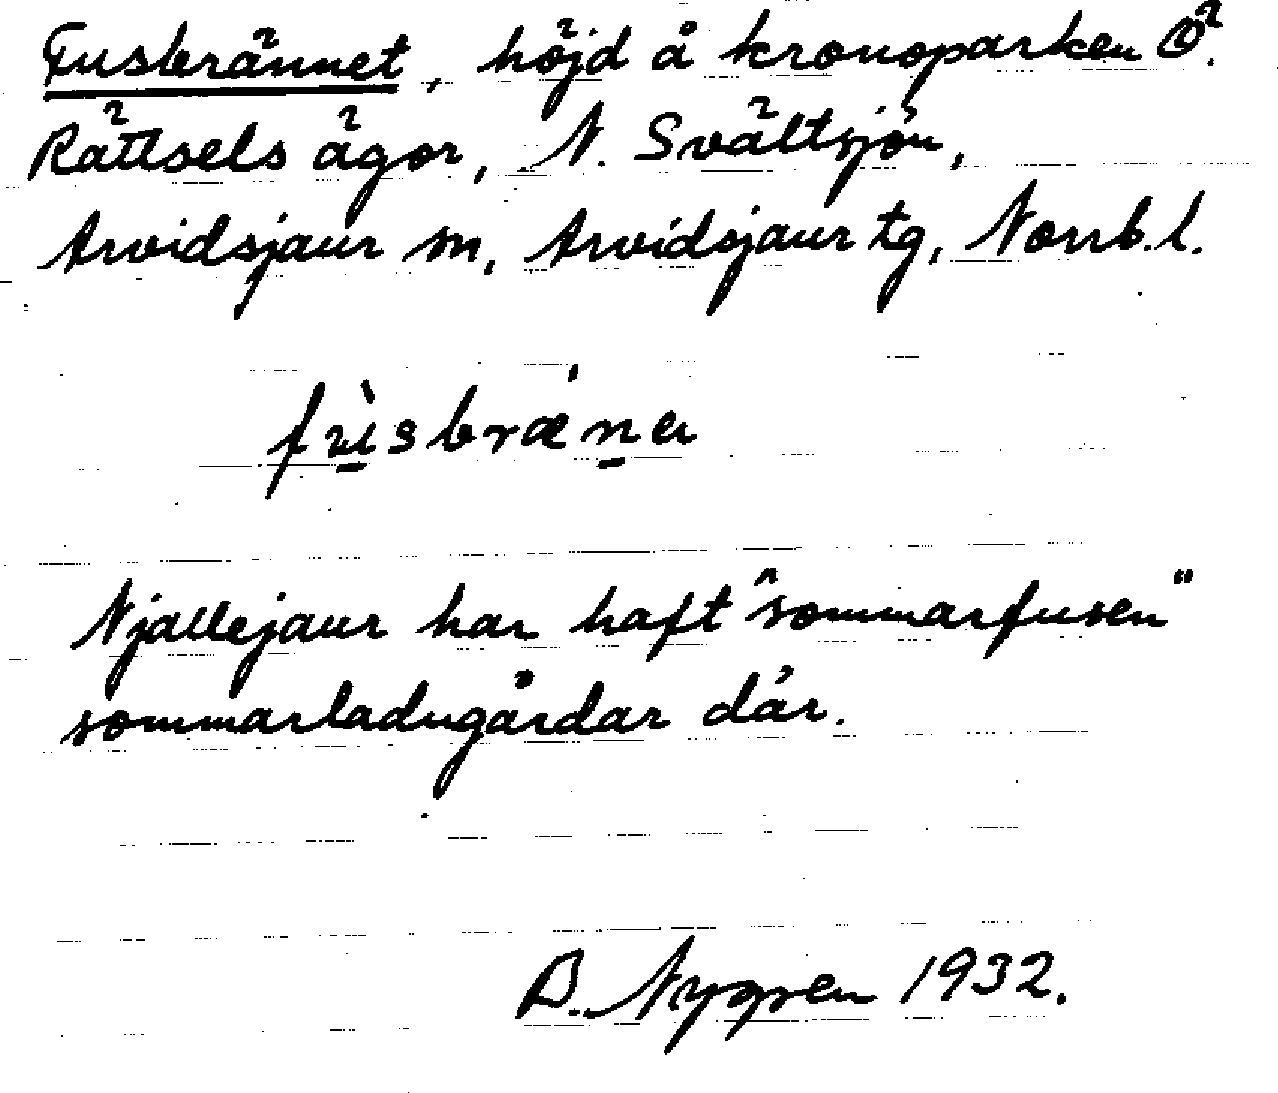 Fusbrännet, höjd å kronoparken Ö.
Rättsels ägor, N. Svältsjön,
Arvidsjaur sn, Arvidsjaur tg, Norrb. l.
fùsbræ´na
Njallejaur har haft "sommarfusen"
sommarladugårdar där.
B. Nygren 1932.